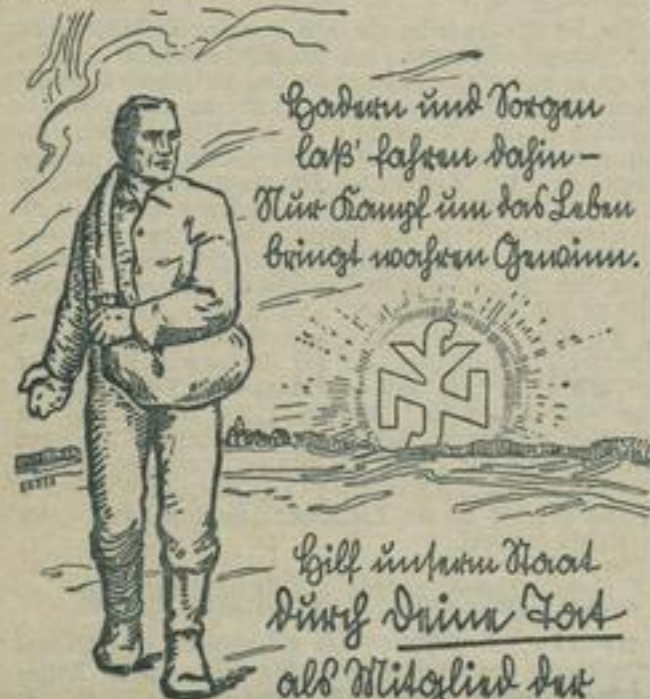 Hadern und Sorgen
laß' fahren dahin –
Nur Kampf um das Leben
bringt wahren Gewinn.
Hilf unserm Staat
durch Deine Tat
als Mitglied der